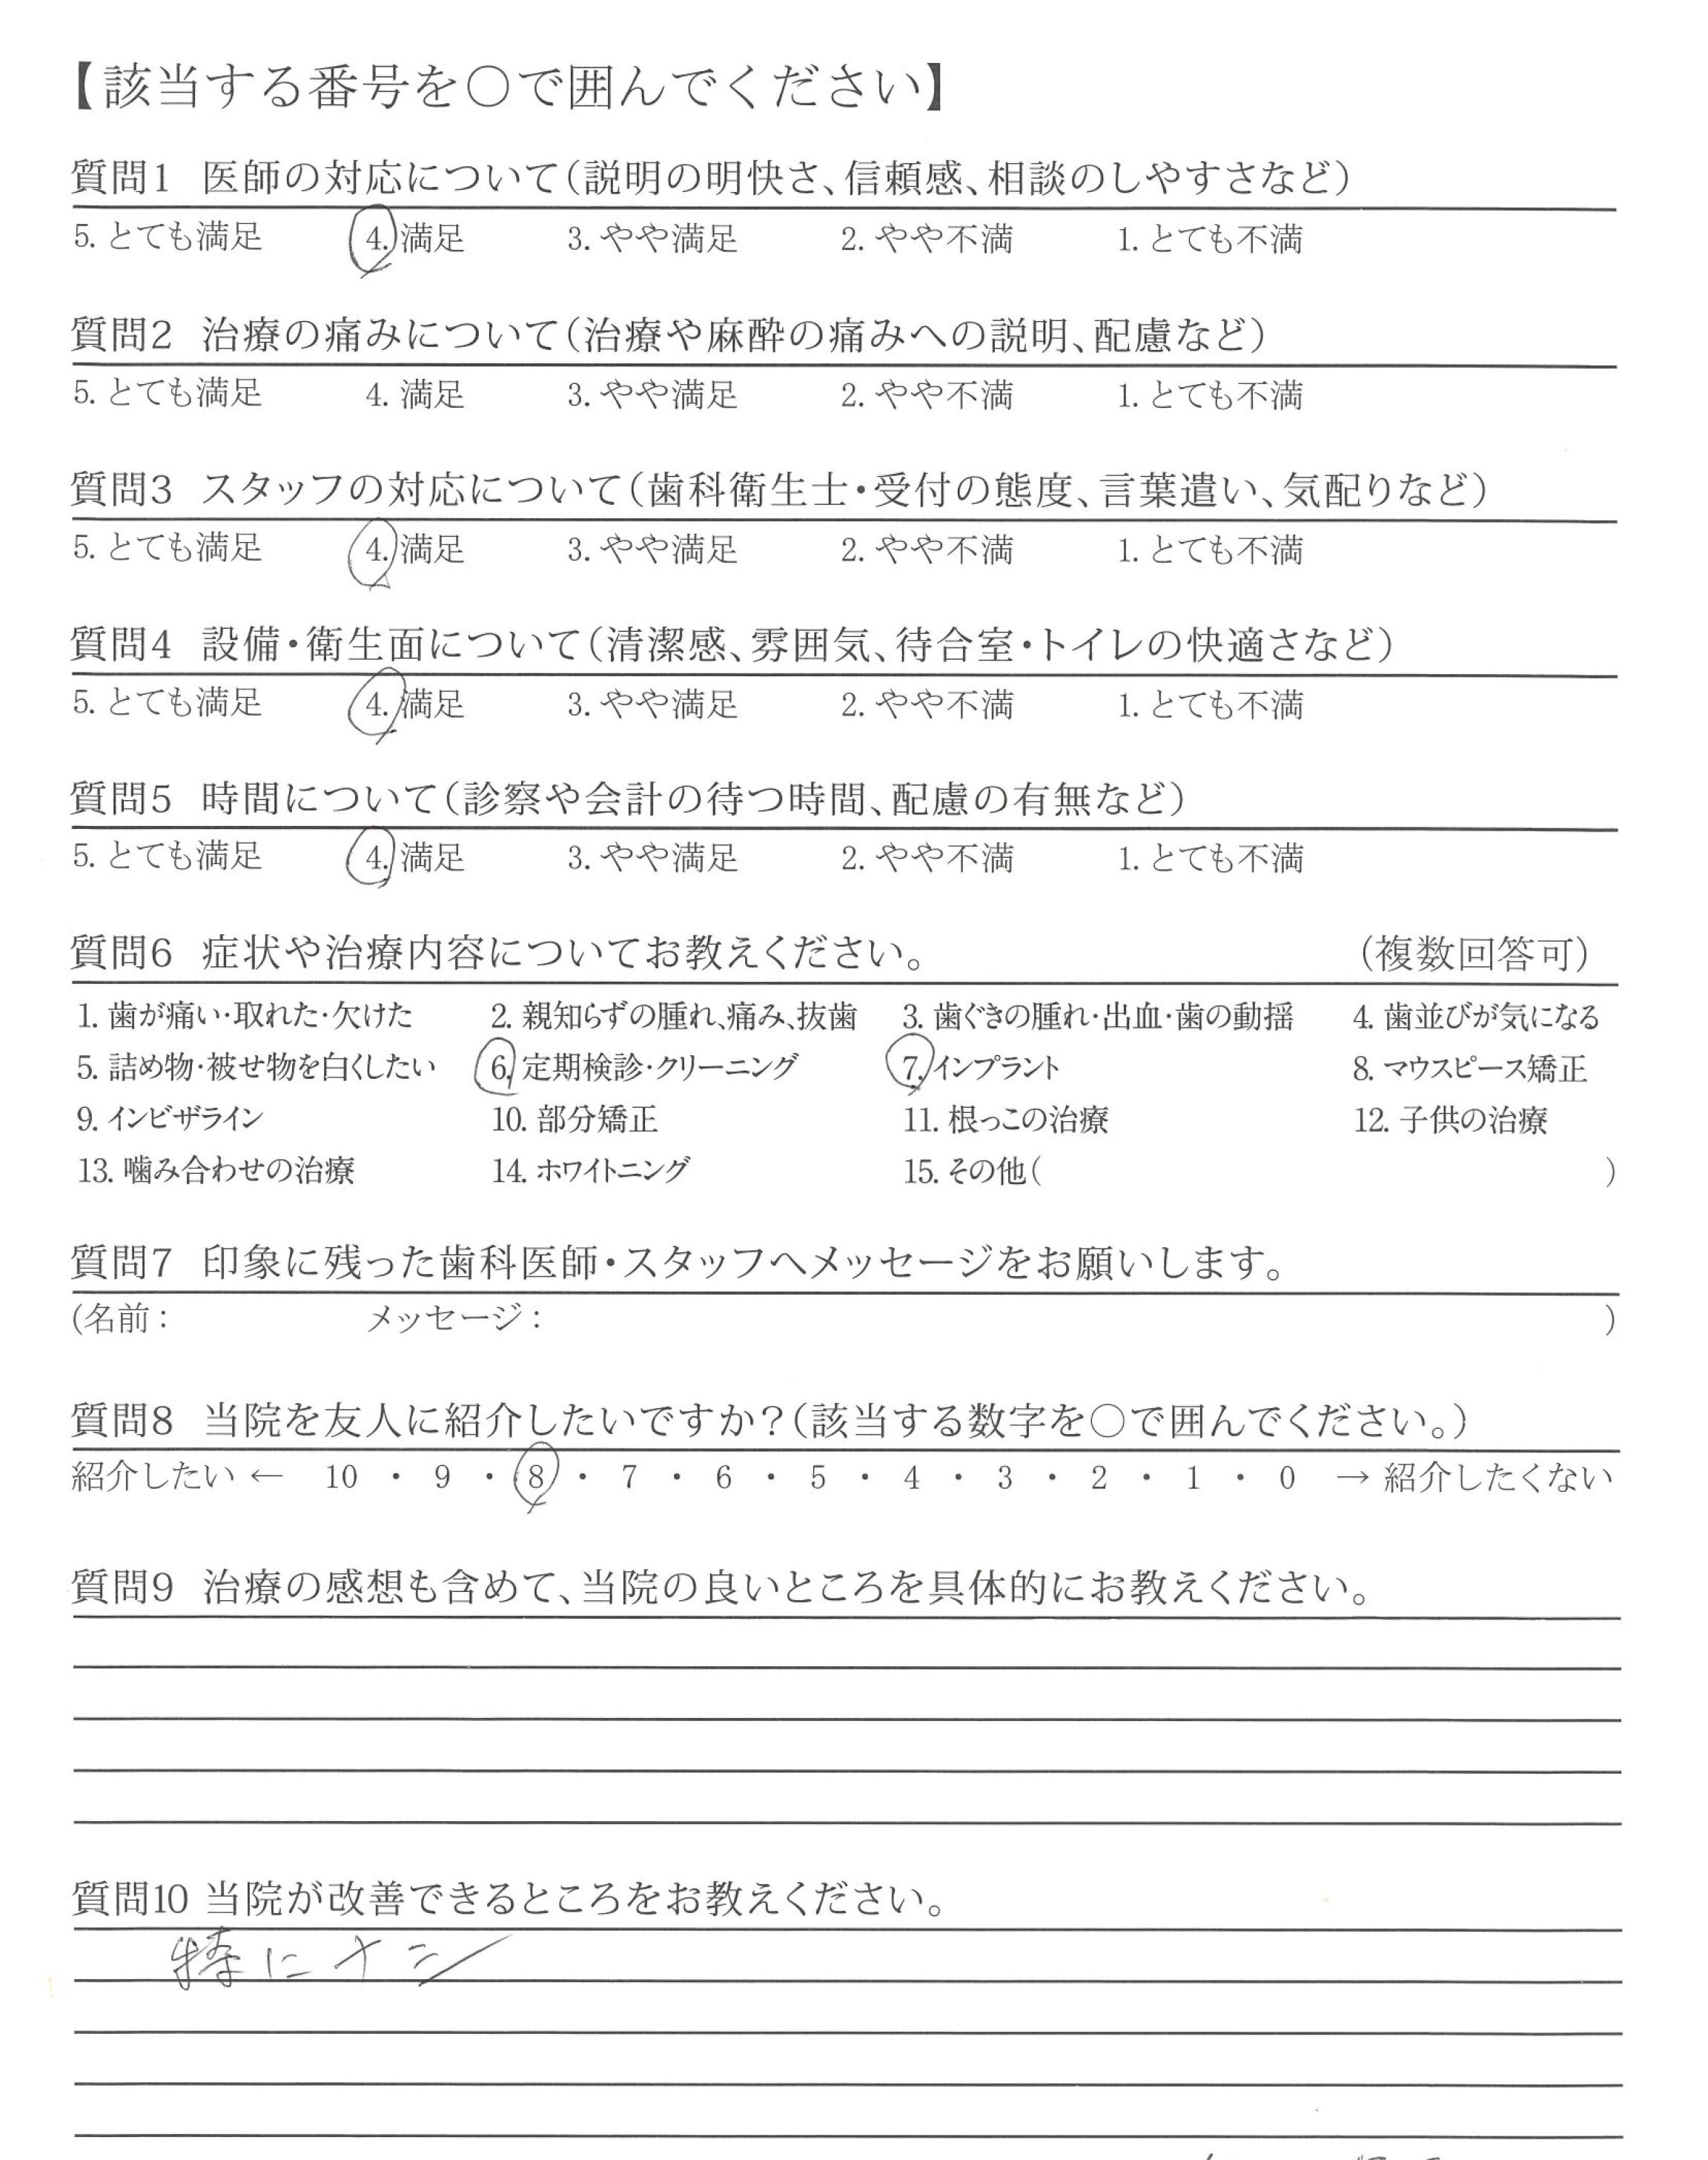 【該当する番号を○で囲んでください】
質問1 医師の対応について(説明の明快さ、信頼感、相談のしやすさなど)
5. とても満足 4. 満足 3. やや満足 2. やや不満 1. とても不満
質問2 治療の痛みについて(治療や麻酔の痛みへの説明、配慮など)
5. とても満足 4. 満足 3. やや満足 2. やや不満 1. とても不満
質問3 スタッフの対応について(歯科衛生士・受付の態度、言葉遣い、気配りなど)
5. とても満足 4. 満足 3. やや満足 2. やや不満 1. とても不満
質問4 設備・衛生面について(清潔感、雰囲気、待合室・トイレの快適さなど)
5. とても満足 4. 満足 3. やや満足 2. やや不満 1. とても不満
質問5 時間について(診察や会計の待つ時間、配慮の有無など)
5. とても満足 4. 満足 3. やや満足 2. やや不満 1. とても不満
質問6 症状や治療内容についてお教えください。 (複数回答可)
1. 歯が痛い・取れた・欠けた 2. 親知らずの腫れ、痛み、抜歯 3. 歯ぐきの腫れ・出血・歯の動揺 4. 歯並びが気になる
5. 詰め物・被せ物を白くしたい 6. 定期検診・クリーニング 7. インプラント 8. マウスピース矯正
9. インビザライン 10. 部分矯正 11. 根っこの治療 12. 子供の治療
13. 噛み合わせの治療 14. ホワイトニング 15. その他( )
質問7 印象に残った歯科医師・スタッフへメッセージをお願いします。
(名前: メッセージ: )
質問8 当院を友人に紹介したいですか?(該当する数字を○で囲んでください。)
紹介したい ← 10 ・ 9 ・ 8 ・ 7 ・ 6 ・ 5 ・ 4 ・ 3 ・ 2 ・ 1 ・ 0 → 紹介したくない
質問9 治療の感想も含めて、当院の良いところを具体的にお教えください。
質問10 当院が改善できるところをお教えください。
特にナシ